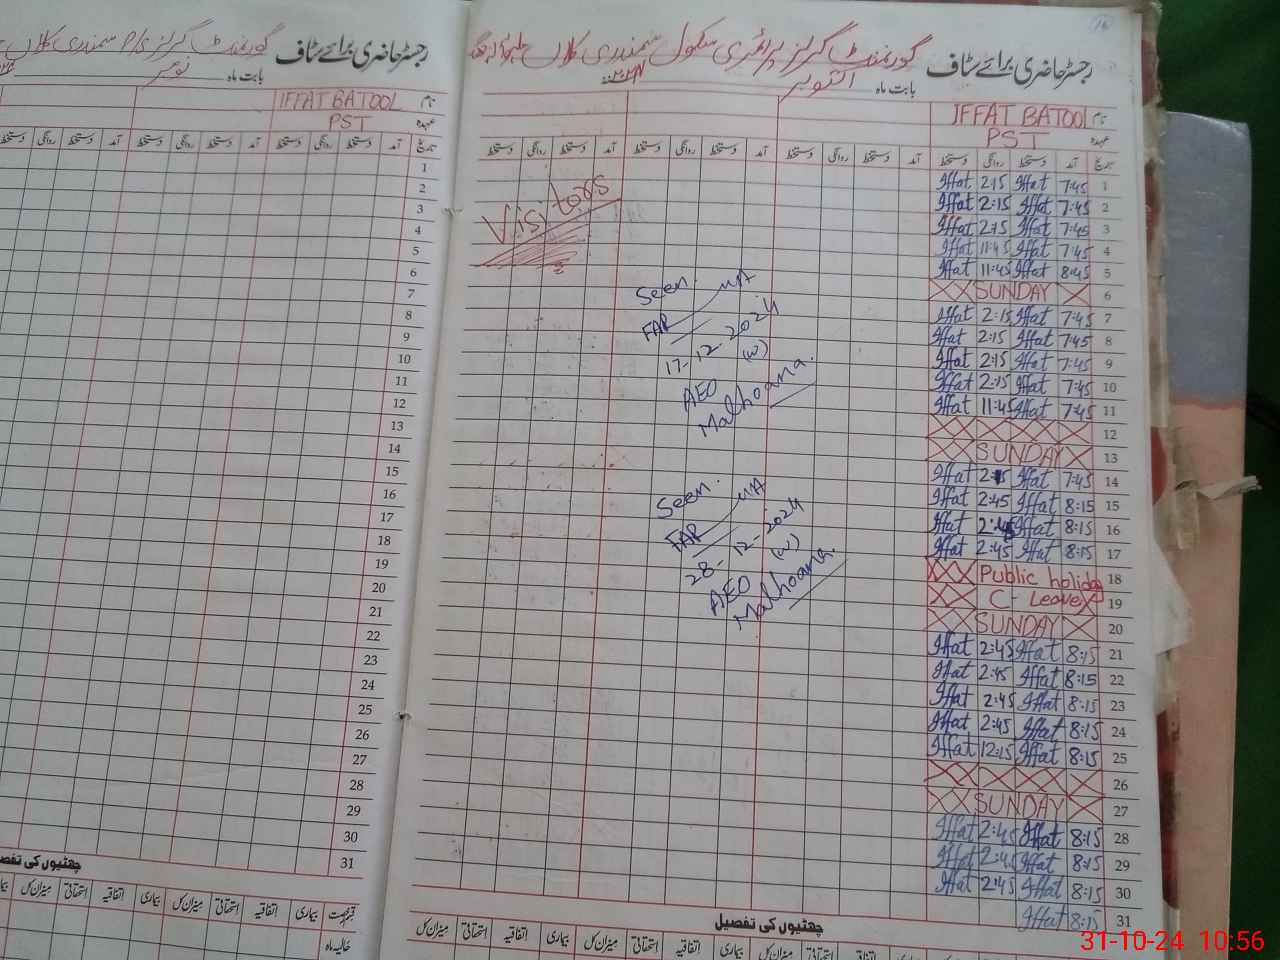 رجسٹر حاضری برائے سٹاف گورنمنٹ گرلز پرائمری سکول سمندری کلاں
بابت ماہ اکتوبر
نام IFFAT BATOOL
عہدہ PST
تاریخ آمد دستخط روانگی دستخط آمد دستخط روانگی دستخط آمد دستخط روانگی دستخط
1 7:45 Iffat 2:15 Iffat
2 7:45 Iffat 2:15 Iffat
3 7:45 Iffat 2:15 Iffat
4 7:45 Iffat 11:45 Iffat
5 8:45 Iffat 11:45 Iffat
6 SUNDAY
7 7:45 Iffat 2:15 Iffat
8 7:45 Iffat 2:15 Iffat
9 7:45 Iffat 2:15 Iffat
10 7:45 Iffat 2:15 Iffat
11 7:45 Iffat 11:45 Iffat
12
13 SUNDAY
14 7:45 Iffat Iffat
15 8:15 Iffat 2:45 Iffat
16 8:15 Iffat 2:45 Iffat
17 8:15 Iffat 2:45 Iffat
18 Public holiday
19 C- Leave
20 SUNDAY
21 8:15 Iffat 2:45 Iffat
22 8:15 Iffat 2:45 Iffat
23 8:15 Iffat 2:45 Iffat
24 8:15 Iffat 2:45 Iffat
25 8:15 Iffat 12:15 Iffat
26
27 SUNDAY
28 8:15 Iffat 2:45 Iffat
29 8:15 Iffat 2:45 Iffat
30 8:15 Iffat 2:45 Iffat
31 8:15 Iffat
Visitors
Seen.
17-12-2024
AEO (w)
Malhoana.
Seen.
28-12-2024
AEO (w)
Malhoana.
چھٹیوں کی تفصیل
بیماری اتفاقیہ استحقاقی میزان کل بیماری اتفاقیہ استحقاقی میزان کل
رجسٹر حاضری برائے سٹاف گورنمنٹ گرلز P/S سمندری کلاں
بابت ماہ نومبر
نام IFFAT BATOOL
عہدہ PST
تاریخ آمد دستخط روانگی دستخط آمد دستخط روانگی دستخط آمد دستخط روانگی دستخط
1
2
3
4
5
6
7
8
9
10
11
12
13
14
15
16
17
18
19
20
21
22
23
24
25
26
27
28
29
30
31
چھٹیوں کی تفصیل
قسم رخصت بیماری اتفاقیہ استحقاقی میزان کل بیماری اتفاقیہ استحقاقی میزان کل
حالیہ ماہ
31-10-24 10:56